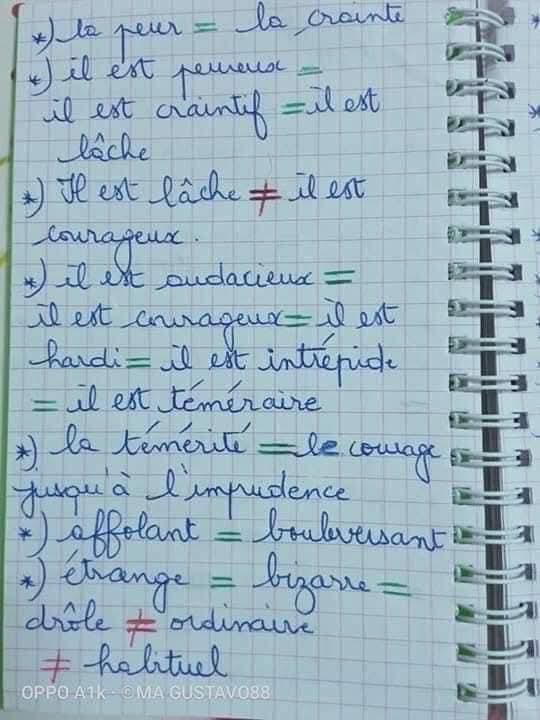 *) la peur = la crainte
*) il est peureux =
il est craintif = il est
lâche
*) Il est lâche ≠ il est
courageux.
*) il est audacieux =
il est courageux = il est
hardi = il est intrépide
= il est téméraire
*) la témérité = le courage
jusqu'à l'imprudence
*) affolant = bouleversant
*) étrange = bizarre =
drôle ≠ ordinaire
≠ habituel
OPPO A1k · ©MA GUSTAVO88